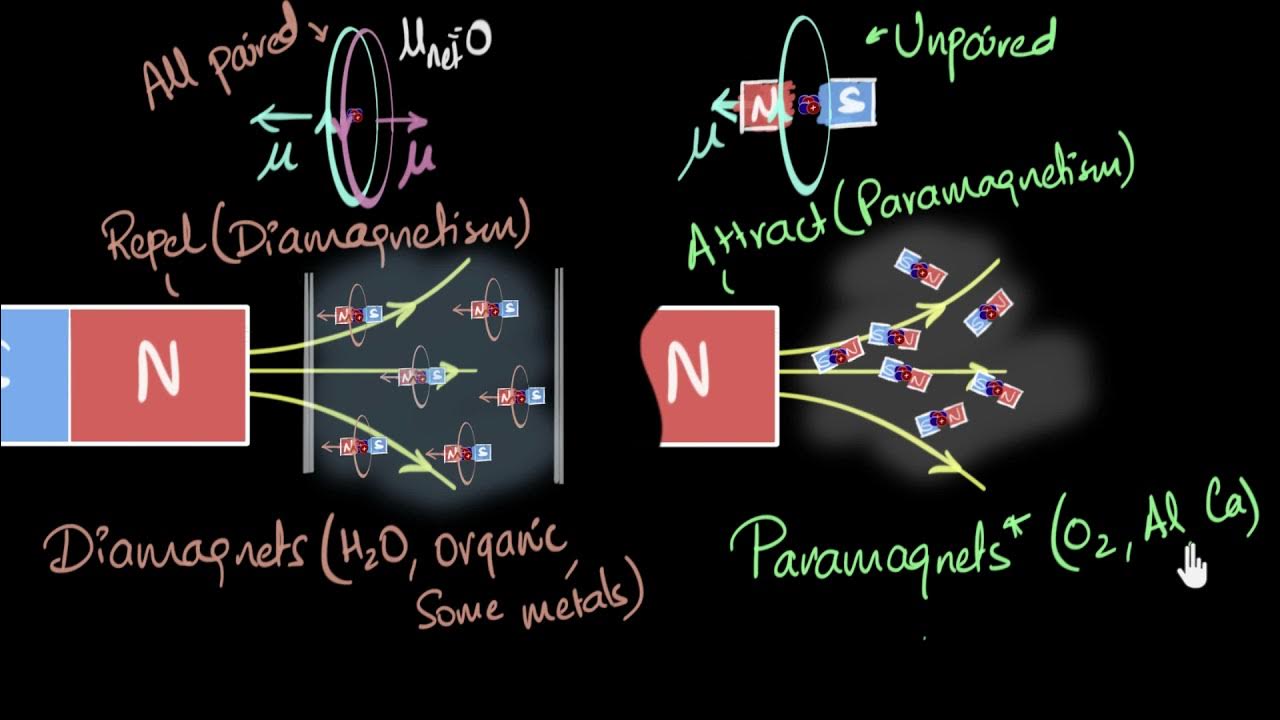 All paired
μnet=0
μ
μ
Unpaired
N
S
μ
Repel (Diamagnetism)
Attract (Paramagnetism)
S
N
N
N S
N S
N S
N S
N S
N S
S N
S N
S N
S N
S N
S N
S N
Diamagnets (H₂O, Organic,
Some metals)
Paramagnets* (O₂, Al, Ca)